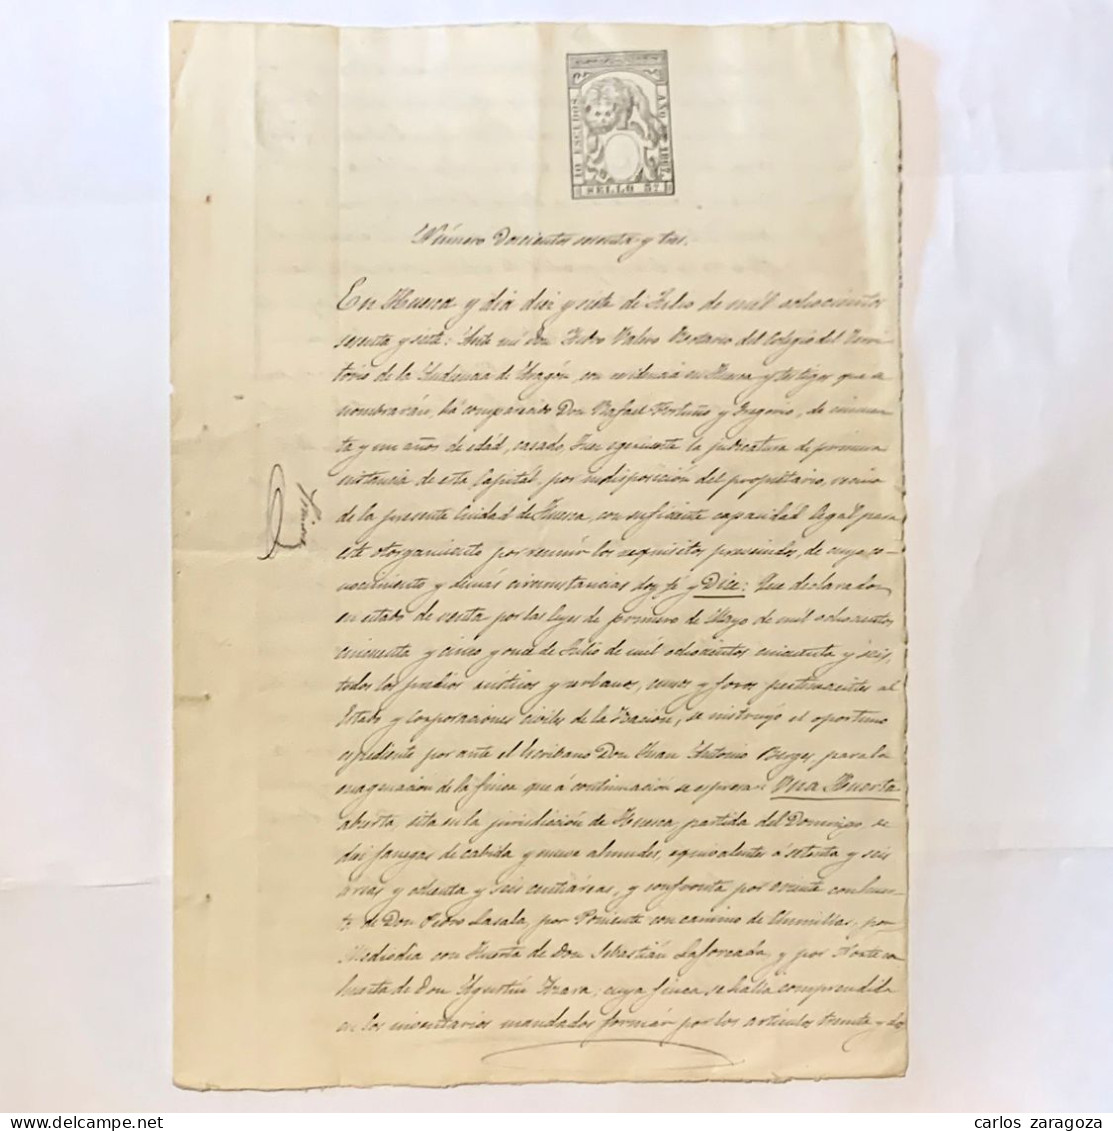 10 ESCUDOS.
AÑO DE 1867.
SELLO 3º
Número Doscientos sesenta y tres.
En Huesca y dia diez y siete de Julio de mil ochocientos
sesenta y siete: Ante mi Don Pedro Valero Notario del Colegio del Terri-
torio de la Audiencia de Aragón, con residencia en Huesca y testigos que se
nombrarán, ha comparecido Don Rafael Fortuño y Gregorio, de cincuen-
ta y un años de edad, casado, Juez egerciente la judicatura de primera
instancia de esta Capital, por indisposición del propietario, vecino
de la presente Ciudad de Huesca, con suficiente capacidad legal para
este otorgamiento por reunir los requisitos prevenidos, de cuyo co-
nocimiento y demás circunstancias doy fé y Dice: Que declarados
en estado de venta por las leyes de primero de Mayo de mil ochocientos
cincuenta y cinco y once de Julio de mil ochocientos cincuenta y seis,
todos los predios rústicos y urbanos, censos y foros pertenecientes al
Estado y Corporaciones Civiles de la Nación, se instruyó el oportuno
espediente por ante el Escribano Don Juan Antonio Berges, para la
enagenación de la finca que á continuación se espresa: Una Huerta
abierta, sita en la jurisdicción de Huesca, partida del Domingo, de
diez fanegas de cabida y nueve almudes, equivalentes á setenta y seis
áreas y ochenta y seis centiáreas, y confronta por oriente con huer-
ta de Don Pedro Lasala, por Poniente con camino de Chimillas, por
Mediodia con Huerta de Don Sebastián Laforcada, y por Norte con
huerta de Don Agustín Azara; cuya finca se halla comprendida
en los inventarios mandados formar por los artículos treinta y dos
carlos zaragoza